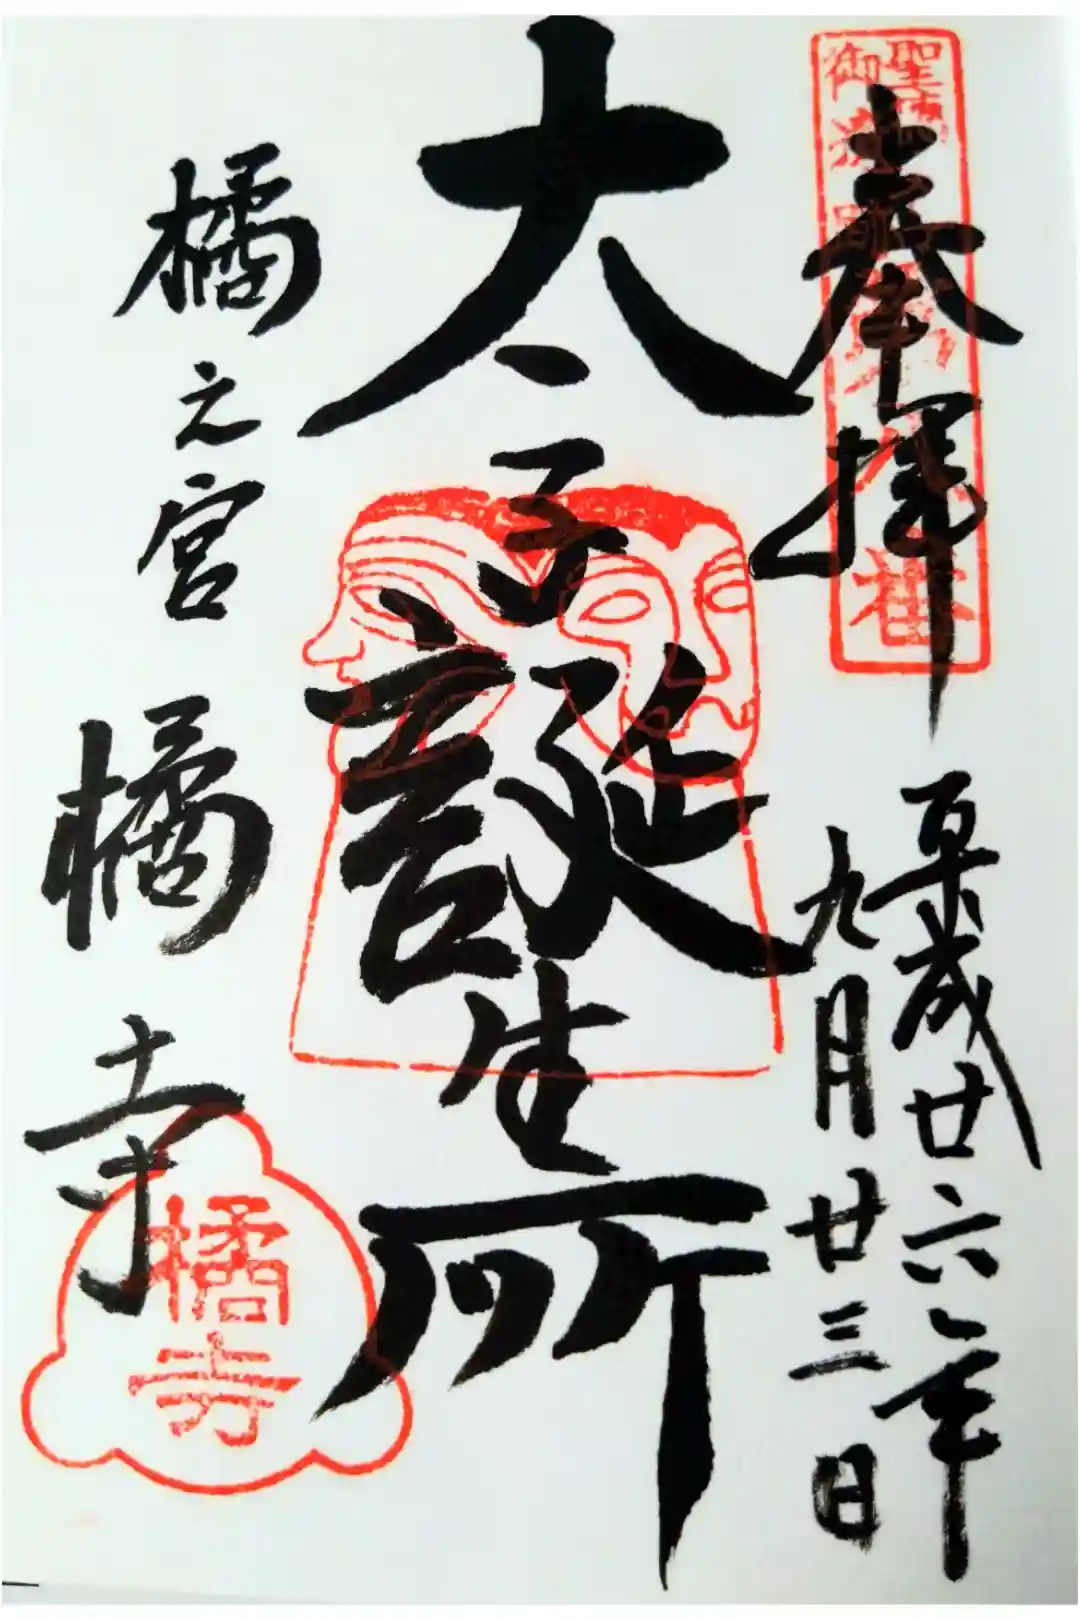 奉拝
平成廿六年
九月廿三日
太子誕生所
橘之宮
橘寺
橘
寺